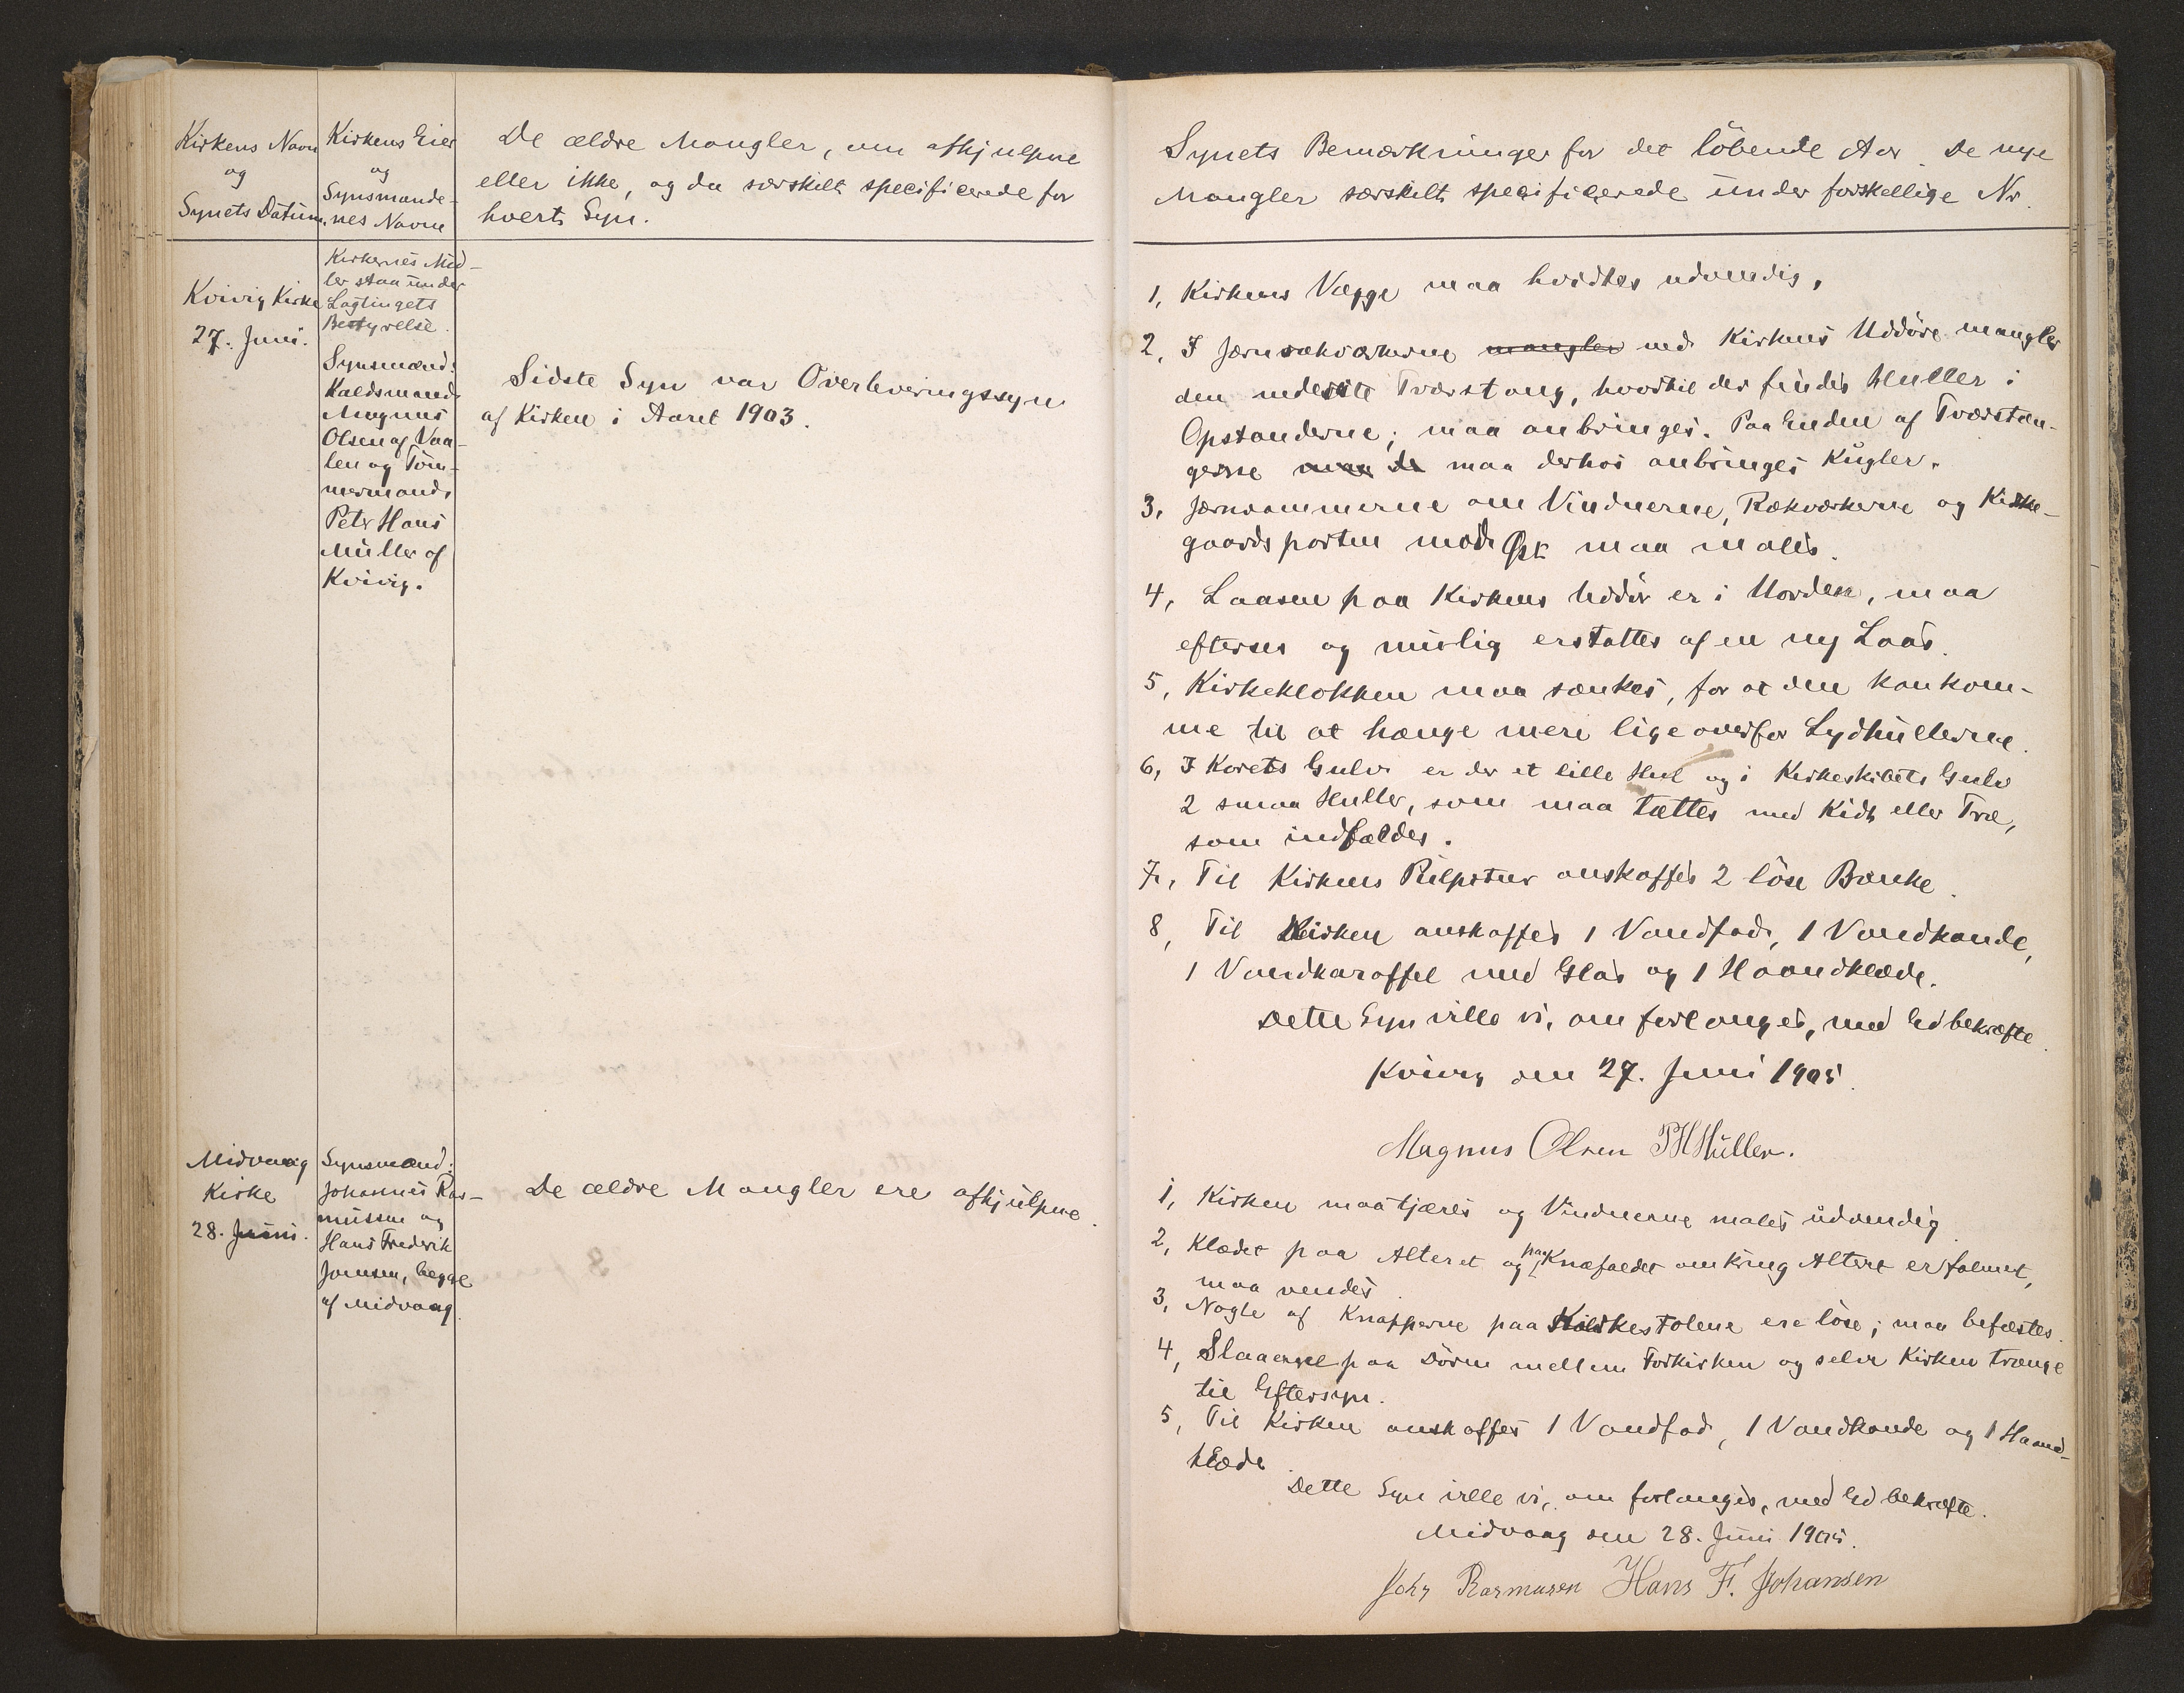 Kirkens Navn
og
Synets Datum.
Kirkens Eier
og
Synsmænde-
nes Navne
De ældre Mangler, om afhjulpne
eller ikke, og da særskilt specificerede for
hvert Syn.
Kvivig Kirke
27. Juni.
Kirkernes Mid-
ler staa under
Lagtingets
Bestyrelse.
Synsmænd:
Kaldsmand
Magnus
Olsen af Vaa-
len og Töm-
mermand
Peter Hans
Müller af
Kvivig.
Sidste Syn var Overleveringssyn
af Kirken i Aaret 1903.
Midvaag
Kirke
28. Juni.
Synsmænd:
Johannes Ras-
mussen og
Hans Frederik
Joensen, begge
af Midvaag
De ældre Mangler ere afhjulpne.
Synets Bemærkninger for det löbende Aar. De nye
Mangler særskilt specificerede under forskellige Nr.
1, Kirkens Vægge maa hvidtes udvendig.
2, I Jernrækværkerne mangler ved Kirkens Uddöre mangler
den nederste Tværstang, hvortil der findes Huller i
Opstanderne; maa anbringes. Paa Enden af Tværstæn-
gerne maa de maa derhos anbringes Kugler.
3, Jernrammerne om Vinduerne, Rækværkerne og Kirke-
gaardsporten mod Öst maa males.
4, Laasen paa Kirkens Uddör er i Uorden, maa
efterses og mulig erstattes af en ny Laas.
5, Kirkeklokken maa sænkes, for at den kan kom-
me til at hænge mere lige overfor Lydhullerne.
6, I Korets Gulv er der et lille Hul og i Kirkeskibets Gulv
2 smaa Huller, som maa tættes med Kidt eller Træ,
som indfældes.
7, Til Kirkens Pulpitur anskaffes 2 löse Bænke.
8, Til Kirken anskaffes 1 Vandfad, 1 Vandkande,
1 Vandkaraffel med Glas og 1 Haandklæde.
Dette Syn ville vi, om forlanges, med Ed bekræfte.
Kvivig den 27. Juni 1905.
Magnus Olsen PHMüller.
1, Kirken maa tjæres og Vinduerne males udvendig.
2, Klædet paa Alteret og paa Knæfaldet omkring Alteret er falmet,
maa vendes.
3, Nogle af Knapperne paa Kirkestolene ere löse; maa befæstes.
4, Slaaerne paa Dören mellem Forkirken og selve Kirken trænge
til Eftersyn.
5, Til Kirken anskaffes 1 Vandfad, 1 Vandkande og 1 Haand-
klæde.
Dette Syn ville vi, om forlanges, med Ed bekræfte.
Midvaag den 28. Juni 1905.
Johs Rasmusen Hans F. Johansen